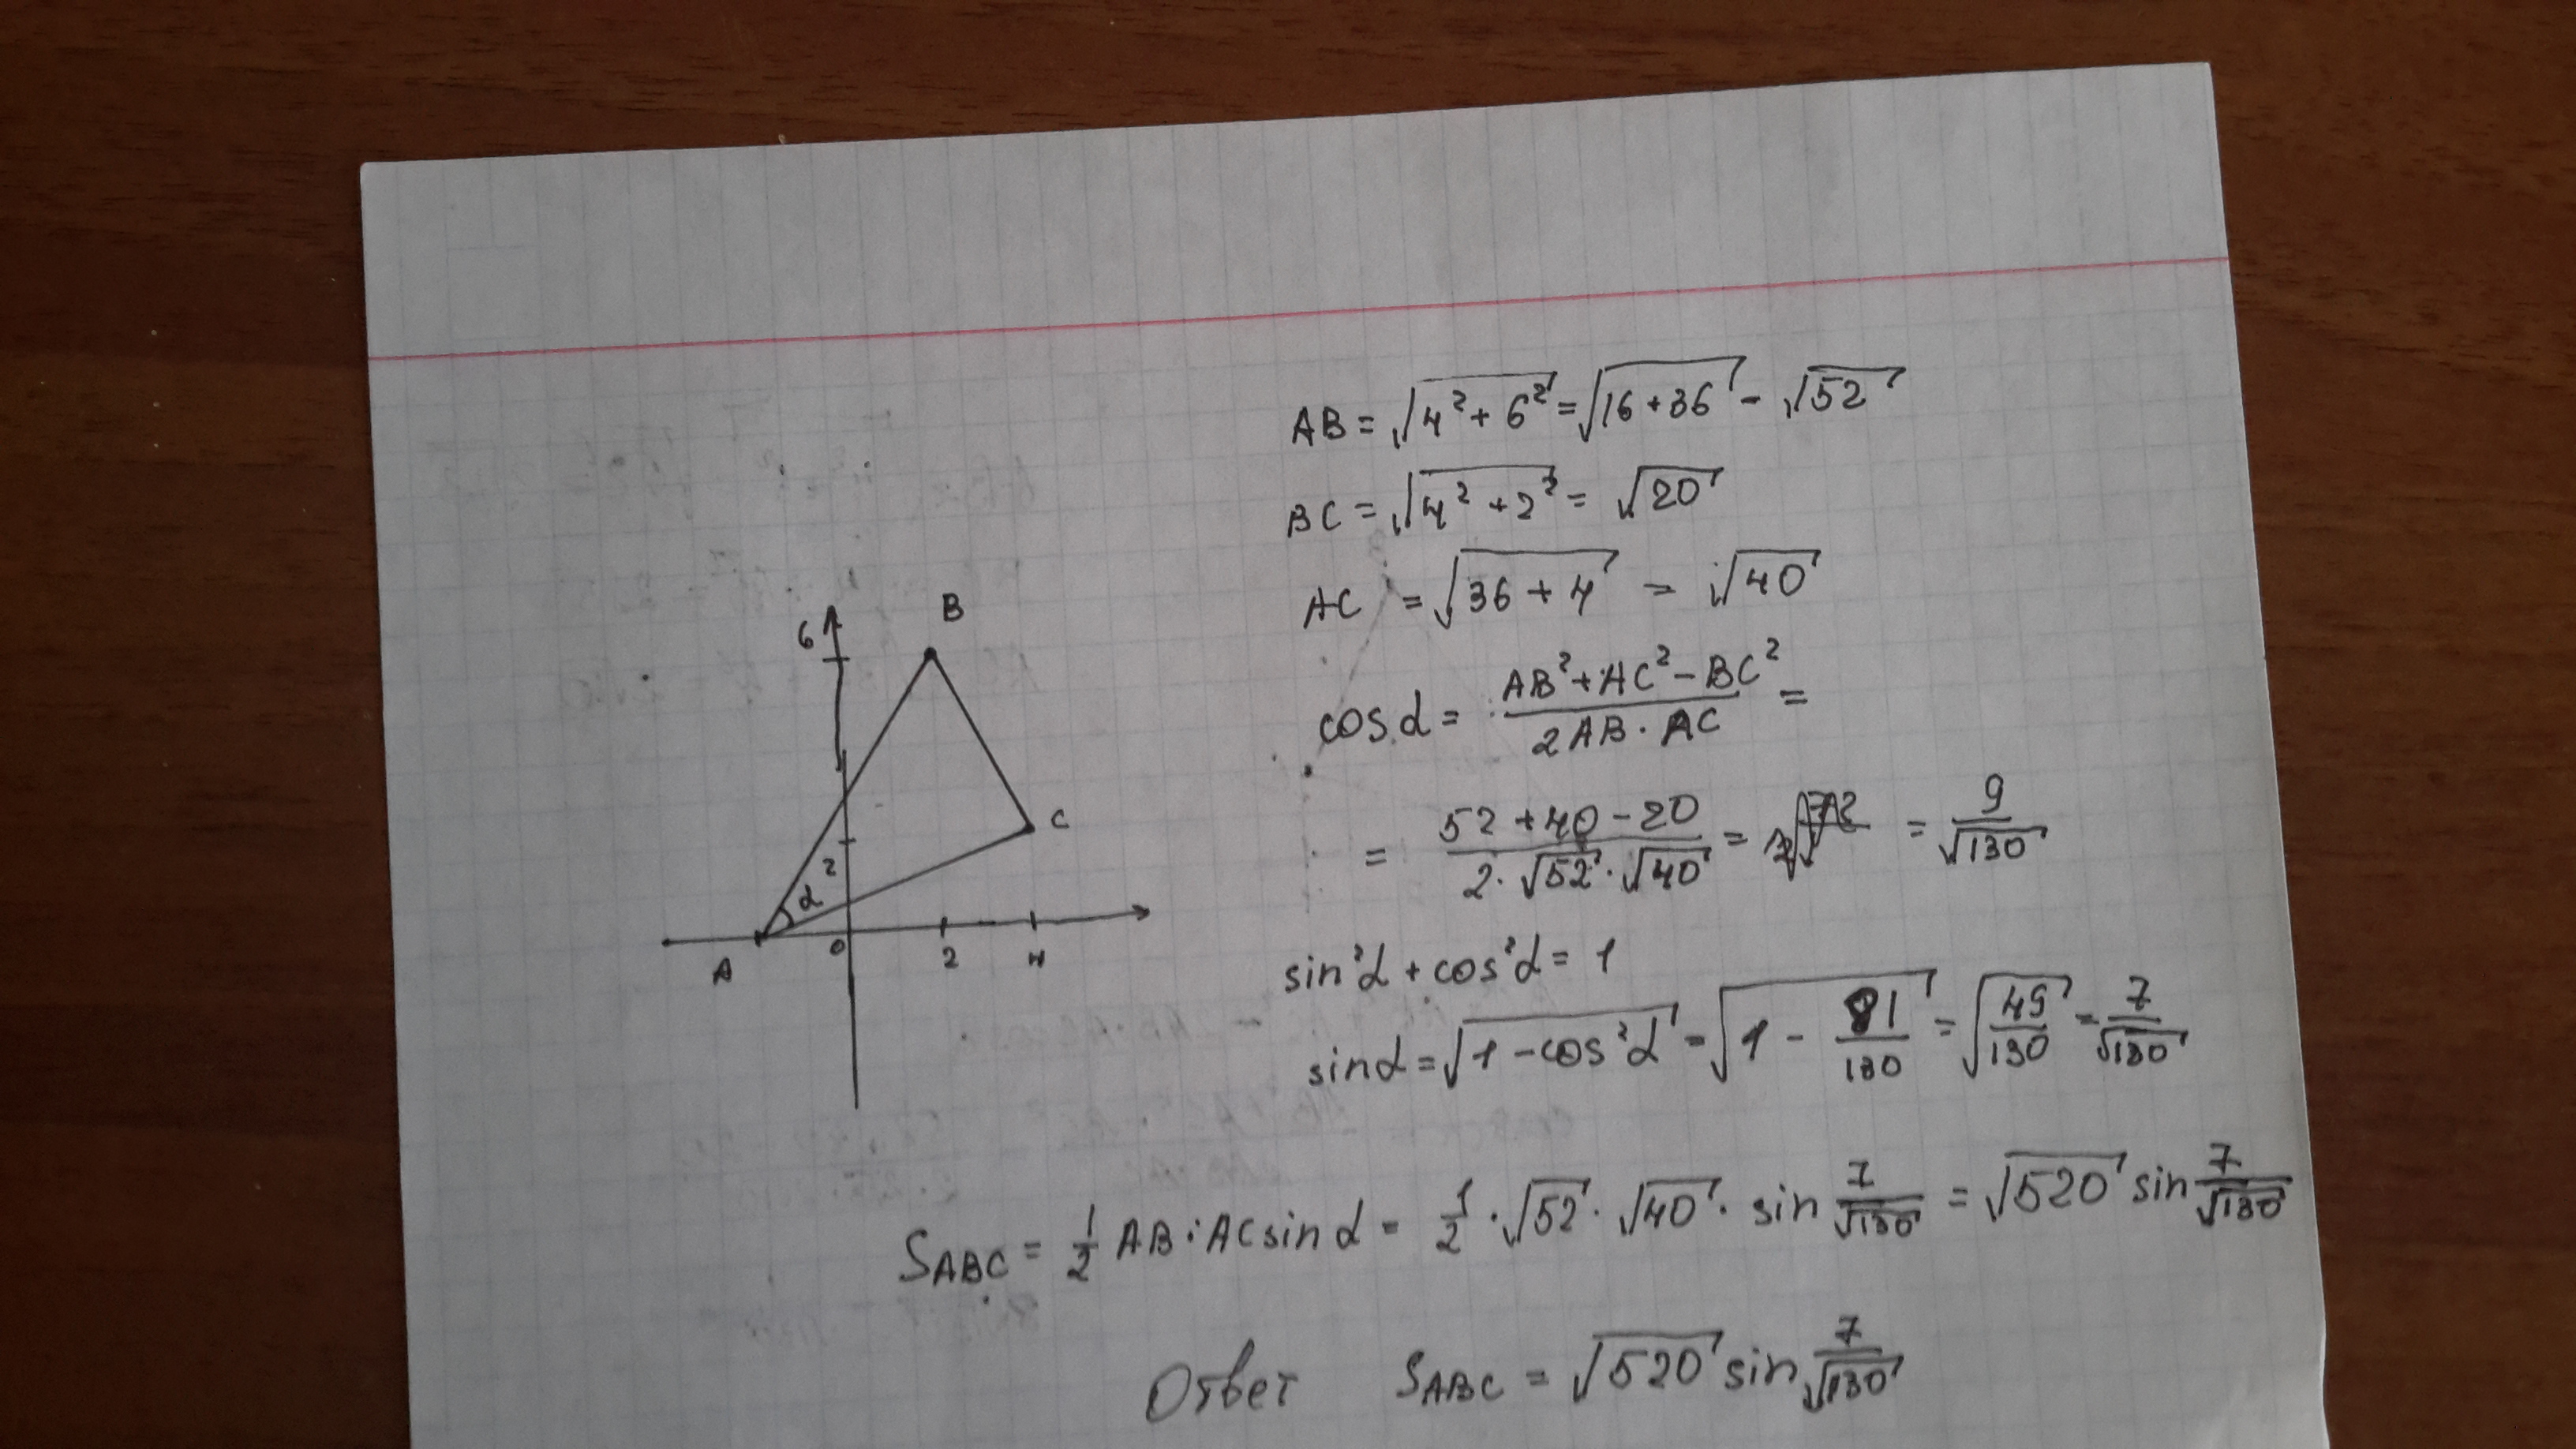 AB = √(4² + 6²) = √(16 + 36) - √52
BC = √(4² + 2²) = √20
AC = √(36 + 4) = √40
cos α = (AB² + AC² - BC²) / (2AB · AC) =
= (52 + 40 - 20) / (2 · √52 · √40) = = 9/√130
sin²α + cos²α = 1
sin α = √(1 - cos²α) = √(1 - 81/130) = √(49/130) = 7/√130
S_ABC = 1/2 AB · AC sin α = 1/2 · √52 · √40 · sin 7/√130 = √520 sin 7/√130
Ответ S_ABC = √520 sin 7/√130
B
6
C
2
α
A 0 2 4